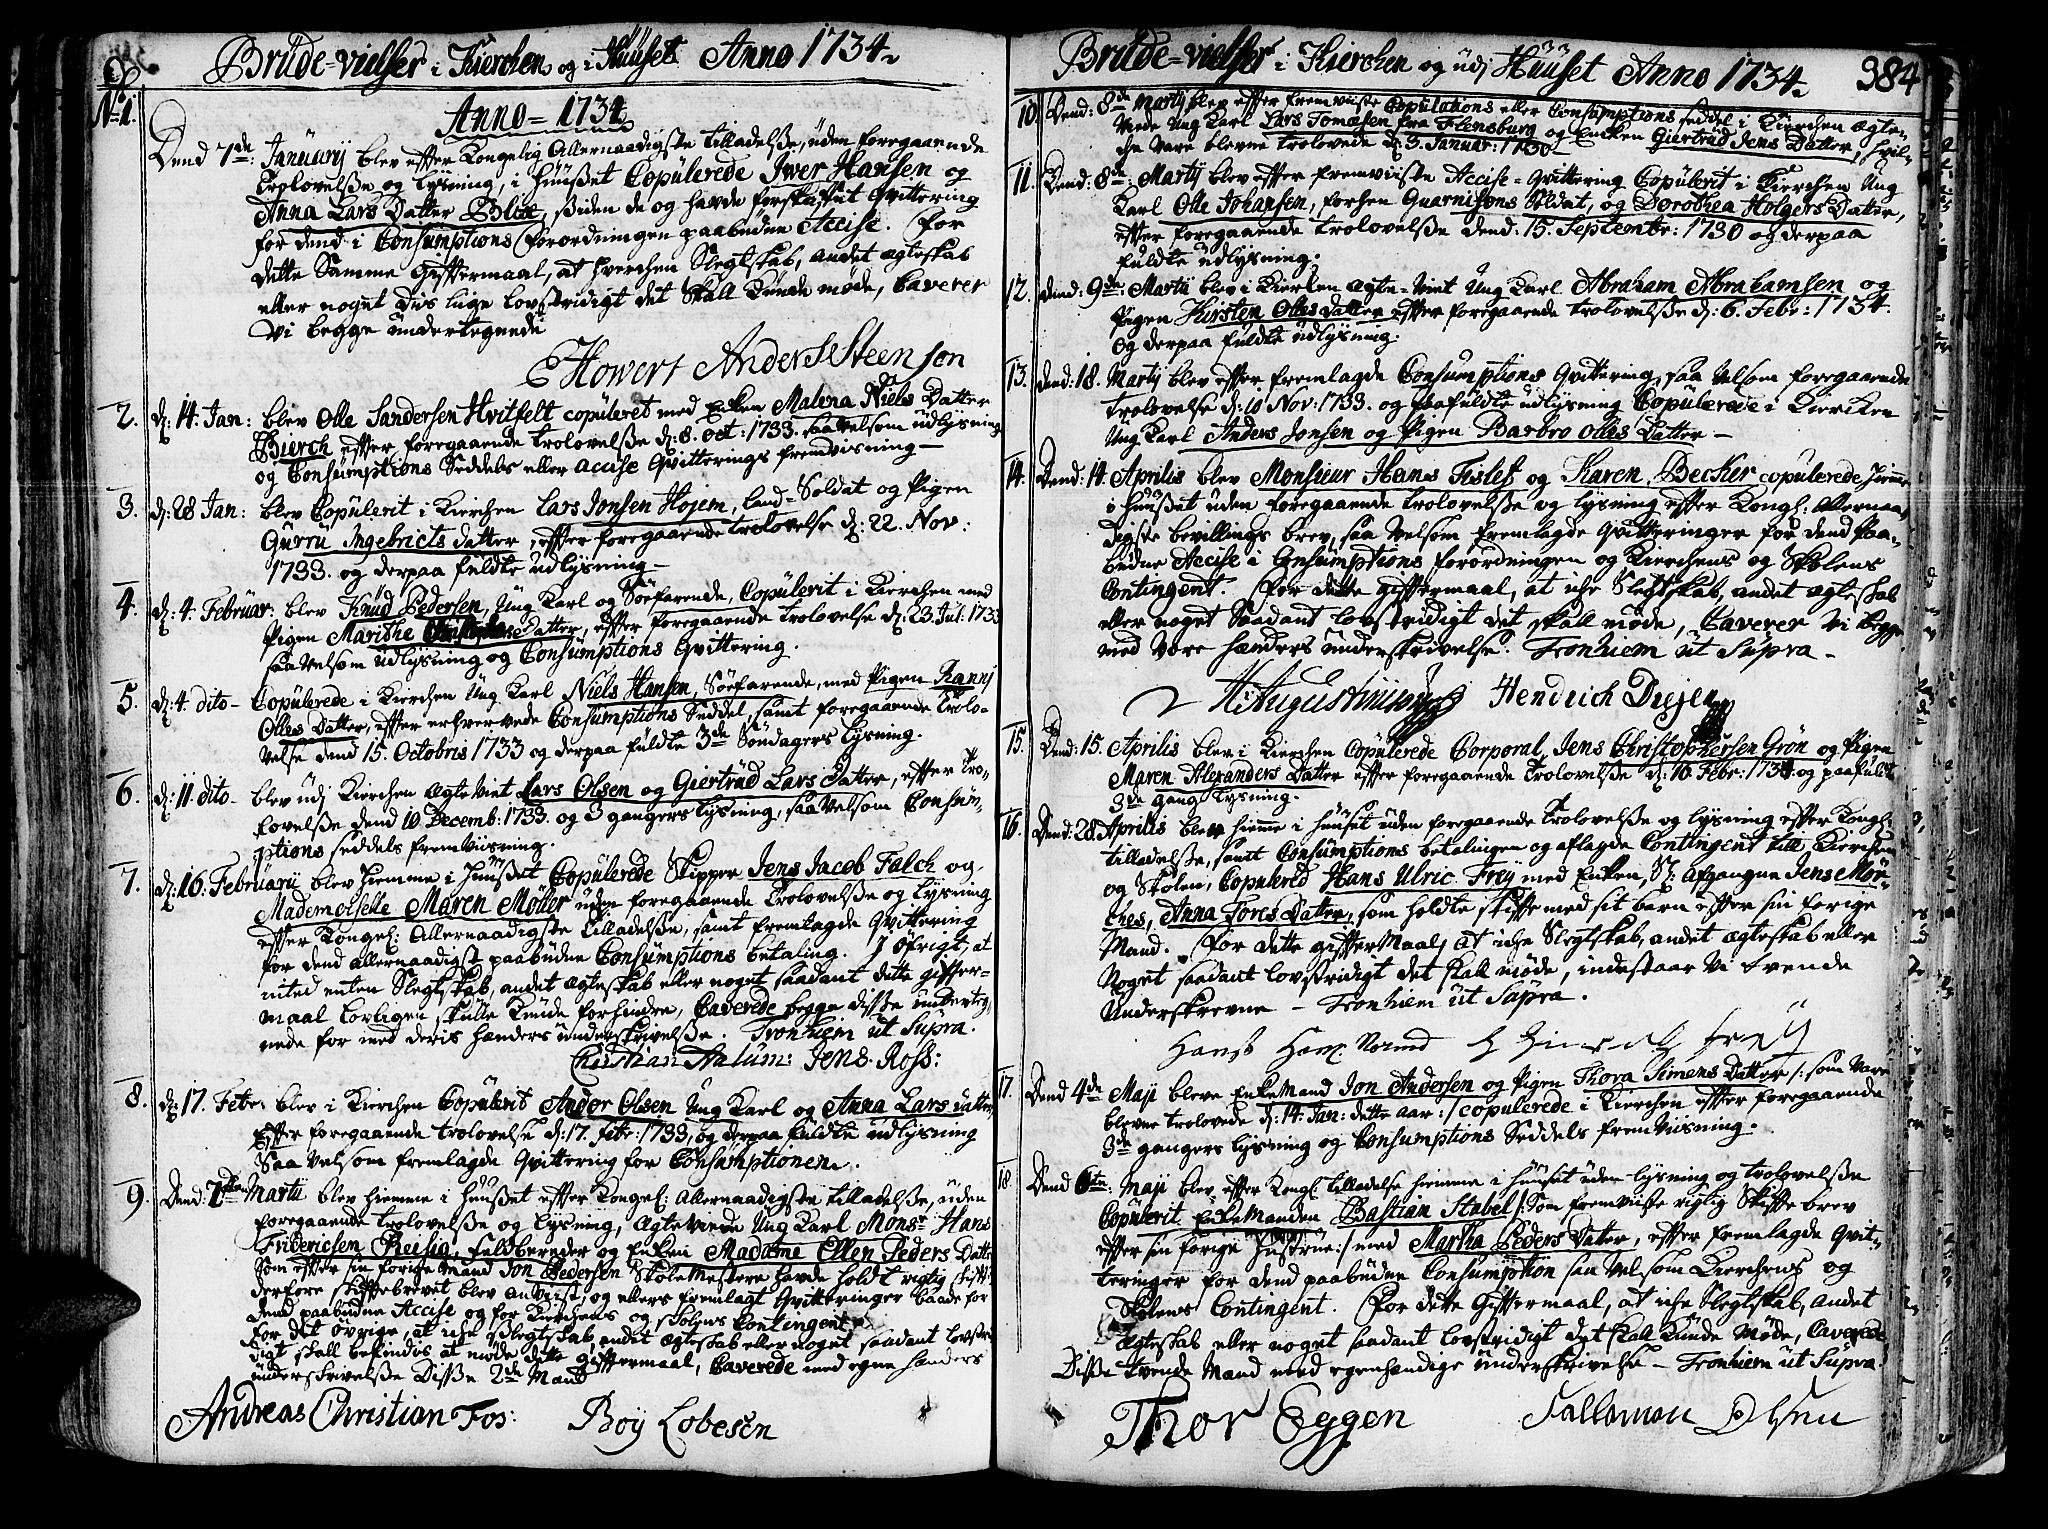 Brüde-vielser i Kierchen og i Huuset Anno 1734.
No 1.
Anno = 1734
Dend 7de Januarij blev efter Kongelig Allernaadigste tilladelse, uden foregaaende
Trolovelse og lysning, i Huuset Copulerede Iwer Hansen og
Anna Lars Datter Blix, siden de og havde forskaffet Qvittering
for dend i Consumptions Forordningen paabudne Accise. For
dette Samme Giftermaal, at hverchen Slegtskab, andet ægteskab
eller noget dis lige lovstridigt det skall kunde møde, Caverer
Vi begge undertegnede
Howert Anders Steenson
2. d: 14. Jan: blev Olle Sandersen Hvitfelt copuleret med Enken Malena Niels Datter
Bierch efter foregaaende trolovelse d: 8. Oct: 1733. saavelsom udlysning
og Consumptions Seddels eller Accise Qvitterings fremvisning
3. d: 28 Jan: blev Copulerit i Kierchen Lars Jonsen Hojem, Land-Soldat og Pigen
Gurru Ingebricts Datter, efter foregaaende trolovelse d: 22. Nov:
1733. og derpaa fuldte udlysning
4. d: 4. Februar: blev Knud Pedersen, Ung Karl og Søefarende, Copulerit i Kierchen med
Pigen Marithe Datter, efter foregaaende trolovelse d: 23. Jul: 1733
saavelsom udlysning og Consumptions Qvittering.
5. d: 4. dito - Copulerede i Kierchen Ung Karl Niels Hansen, Søefarende, med Pigen Ranni
Olles Datter, efter erhvervede Consumptions Seddel, samt foregaaende Trolo-
velse dend 15. Octobris 1733 og derpaa fuldte 3de Søndagers lysning.
6. d: 11. dito - blev udj Kierchen ægteviet Lars Olsen og Giertrud Lars Datter, efter Tro-
lovelse dend 10 Decemb: 1733. og 3 gangers lysning, saavelsom Consum-
ptions seddels fremviisning.
7. d: 16. Februarii blev hiemme i Huuset Copulerede Skipper Jens Jacob Falch og
Mademoiselle Maren Møller uden foregaaende Trolovelse og lysning
efter Kongel: Allernaadigste Tilladelse, samt fremlagde Qvittering
for dend allernaadigst paabudne Consumptions betaling. J øfrigt, at
inted enten Slegtskab, andet ægteskab eller noget saadant dette gifter-
maal lovligen skulle kunde forhindre, Caverede begge disse underteg-
nede for med deris hænders underskrivelse. Tronhiem ut Supra.
Christian Anlum: Jens Ross:
8. d: 17. Febr: blev i Kierchen Copulerit Andor Olsen Ung Karl og Anna Lars datter,
Efter foregaaende trolovelse d: 17. febr: 1733, og derpaa fuldte udlysning
saavelsom fremlagde Qvittering for Consumptionen.
9. Dend Martii blev hiemme i Huuset efter Kongel: Allernaadigste tilladelse, uden
foregaaende trolovelse og lysning, ægteviede Ung Karl Monsr Hans
Friderichsen Reisig, feldbereder og Enken Madame Ellen Peders Datter
som efter sin forige Mand Jon Pedersen Skole Mestere havde holdt rigtig skifte
derfore skiftebrevet blev anvist, og ellers fremlagt Qvitteringer baade for
dend paabudne Accise og for Kirchens og Skolens Contingent.
for det øvrige, at iche Slegtskab, andet ægteskab eller noget saadant lovstri-
digt skall befindis at møde dette giftermaal, Caverede med egne hænders
underskrivelse Disse 2de Mænd
Andreas Christian Fos: Roy Lobesen
Brüde-vielser i Kierchen og udj Huuset Anno 1734. 384
10. Dend: 8de Martij blev efter fremviiste Copulations eller Consumptions seddel i Kierchen ægte-
viede Ung Karl Lars Tomæsen fra Flensburg og Enken Giertrud Jens Datter, hvil-
che vare blevne trolovede d: 3. Januar: 1730
11. Dend: 8de Martij blev efter fremviiste Accise-Qvittering Copulerit i Kierchen Ung
Karl Olle Johansen, forhen Guarnisons Soldat, og Dorothea Holgers Datter,
efter foregaaende trolovelse dend: 15. Septembr: 1730 og derpaa
fuldte udlysning.
12. dend: 9de Martii blev i Kierken ægte-viet Ung Karl Abraham Abrahamsen og
Pigen Kirsten Olles Datter efter foregaaende trolovelse d: 6. Febr: 1734.
og derpaa fuldte udlysning.
13. dend: 18. Martij blev efter fremlagde Consumptions Qvittering, saavelsom foregaaende
trolovelse d: 10 Nov: 1733. og paafuldte udlysning Copulerede i Kierken
Ung Karl Anders Jonsen og Pigen Barbro Olles Datter
14. Dend: 14. Aprilis blev Monsieur Hans Tislef og Karen Becker copulerede hiemme
i Huuset uden foregaaende trolovelse og lysning efter Kongl: Allernaa-
digste bevillings brev, saavelsom fremlagde Qvitteringer for dend paa-
budne Accise i Consumptions forordningen og Kierchens og Skolens
Contingent. For dette giftermaal, at iche Slegtskab, andet ægteskab
eller noget Saadant lovstridigt det skall møde, Caverer Vi begge
med Vore hænders underskrivelse. Tronhiem ut Supra
H: Augustinuson Hendrich Diejen
15. Dend: 15. Aprilis blev i Kierchen Copulerede Corporal, Jens Christophersen Grøn og Pigen
Maren Alexanders Datter efter foregaaende Trolovelse d: 16. Febr: 1734 og paafuldt
3de gangs lysning.
16. Dend: 28 Aprilis blev hiemme i huuset uden foregaaende trolovelse og lysning efter Kongl:
tilladelse, samt Consumptions betalingen og aflagde Contingent till Kierchen
og Skolen, Copulered Hans Ulric Frey med Enken, Sl: afgangne Jens Mør-
ches, Anna Tores Datter, som holdte skifte med sit barn efter sin forige
Mand. For dette giftermaal, at iche Slegtskab, andet ægteskab eller
Noget saadant lovstridigt det skal møde, indestaar Vi tvende
Underskrevne - Tronhiem ut Supra.
17. Dend 4de Maji bleve Enkemand Jon Andersen og Pigen Thora Simens Datter /: som vare
blevne trolovede d: 14. Jan: dette aar :/ copulerede i Kierchen efter foregaaende
3de gangers lysning og Consumptions Seddels fremviisning.
18. Dend 6te Maji blev efter Kongl: tilladelse hiemme i Huuset uden lysning og trolovelse
Copulerit Enkemanden Bastian Stabel /: Som fremviiste rigtig Skifte brev
efter sin forige Hustrue :/ med Martha Peders Datter, efter fremlagde Qvit-
teringer for dend paabudne Consumption saavelsom Kierchens og
Skolens Contingent. For dette Giftermaal, at iche Slegtskab, andet
ægteskab eller noget saadant lovstridigt det skal kunde møde, Caverede
Disse tvende Mænd med egenhændige underskrivelse - Tronhiem ut Supra.
Thor Eggen Sallomon Olsen